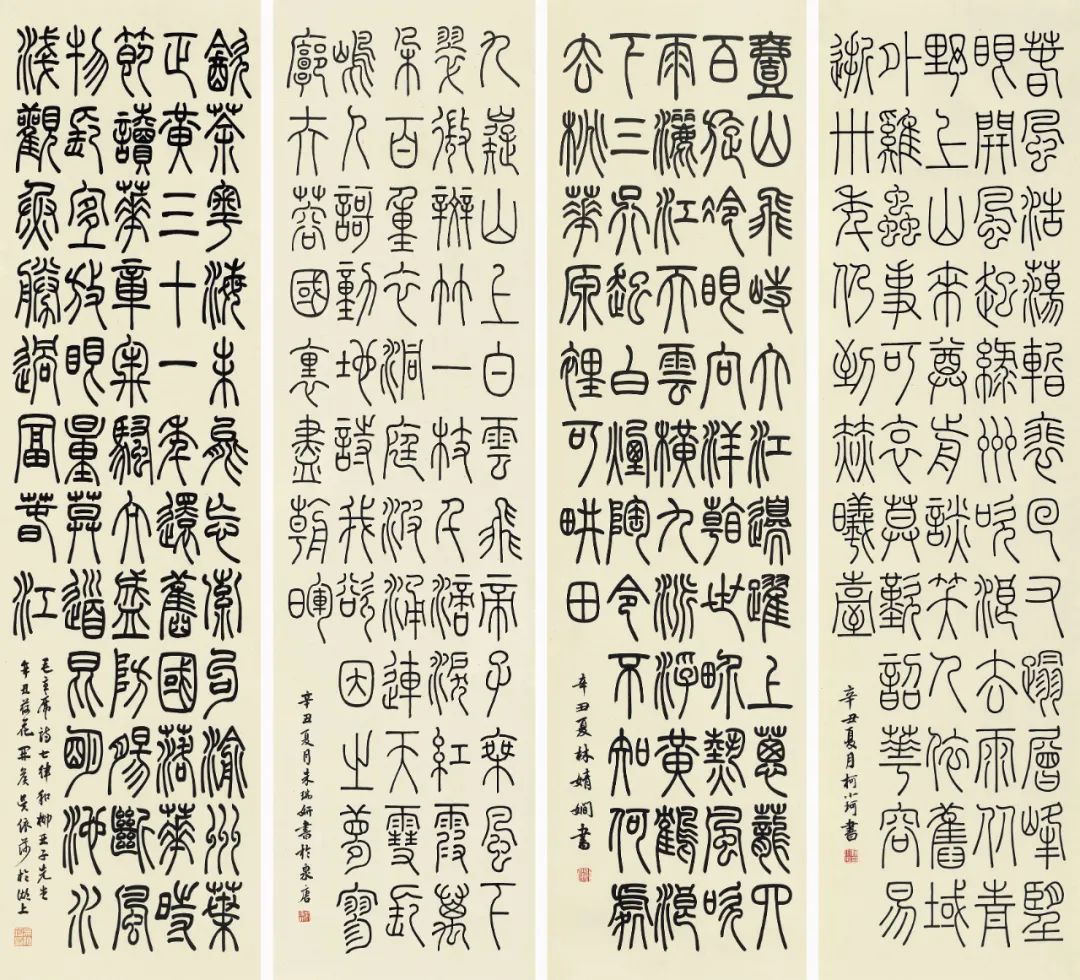 春風浩蕩暫裴回又蹋層峰望
眼開風起綠州吹浪去雨从青
野上山來尊前談笑人依舊域
外雞蟲事可哀莫歎韶華容易
逝卅年仍到赫曦臺
辛丑夏月柯小珂書
壹山飛峙大江邊躍上蔥蘢四
百旋冷眼向洋看世界熱風吹
雨灑江天雲橫九派浮黃鶴浪
下三吳起白煙陶令不知何處
去桃華原裡可耕田
辛丑夏林婧嫺書
九嶷山上白雲飛帝子乘風下
翠微斑竹一枝千滴淚紅霞萬
朵百重衣洞庭波涌連天雪長
島人歌動地詩我欲因之夢寥
廓芙蓉國裏盡朝暉
辛丑夏月朱瑞妍書於泉唐
飲茶粵海未能忘索句渝州葉
正黃三十一年還舊國落華時
節讀華章牢騷太盛防腸斷風
物長宜放眼量莫道昆明池水
淺觀魚勝過富春江
毛主席詩七律和柳亞子先生
辛丑荷花開矣吳依莎於湖上